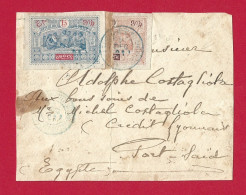 Monsieur
Adolphe Costagliola
Aux bons soins de
Mr Michel Costagliola
Crédit Lyonnais
Port-Saïd
Egypte